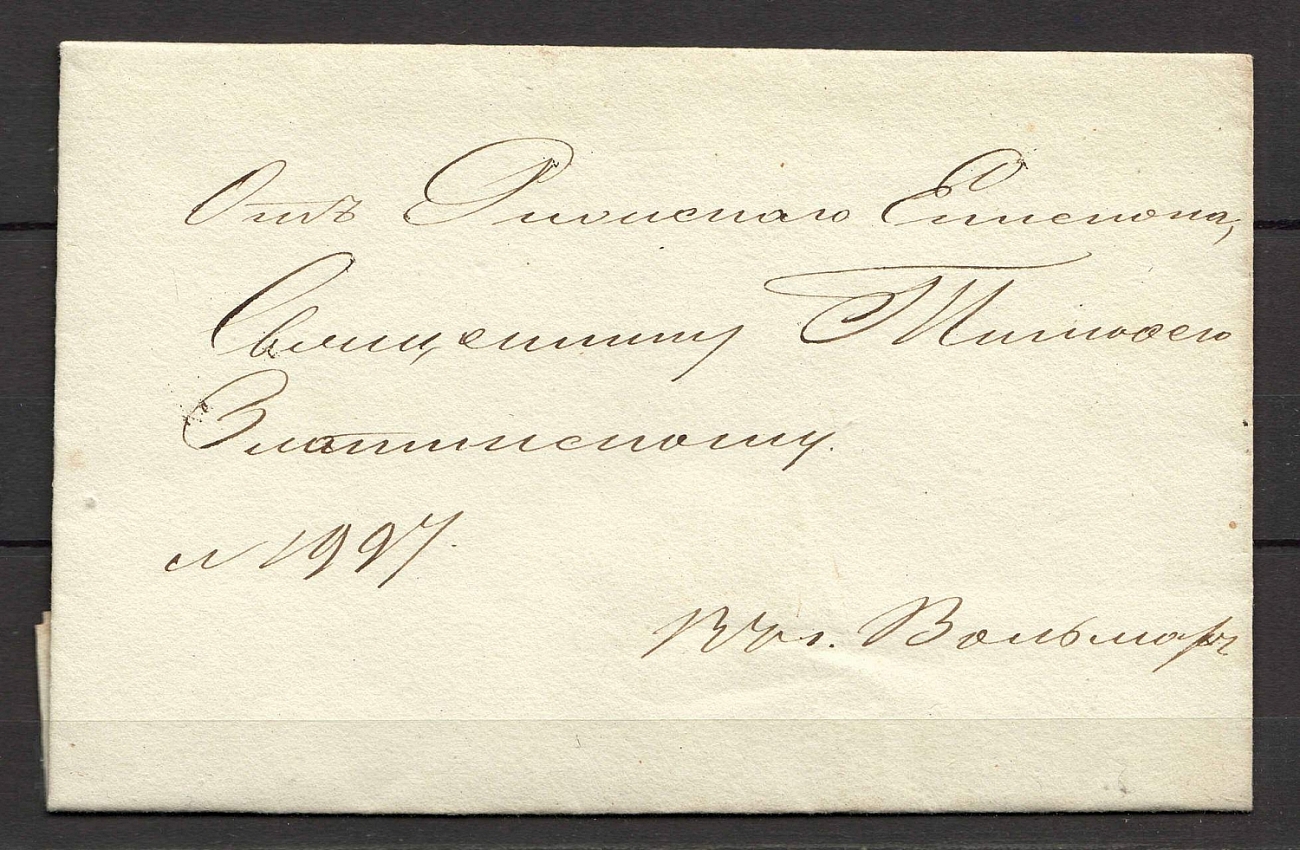 Отъ Рижскаго Епископа,
Священнику Тимоѳею
Златинскому.
№ 1997.
Въ г. Вольмаръ